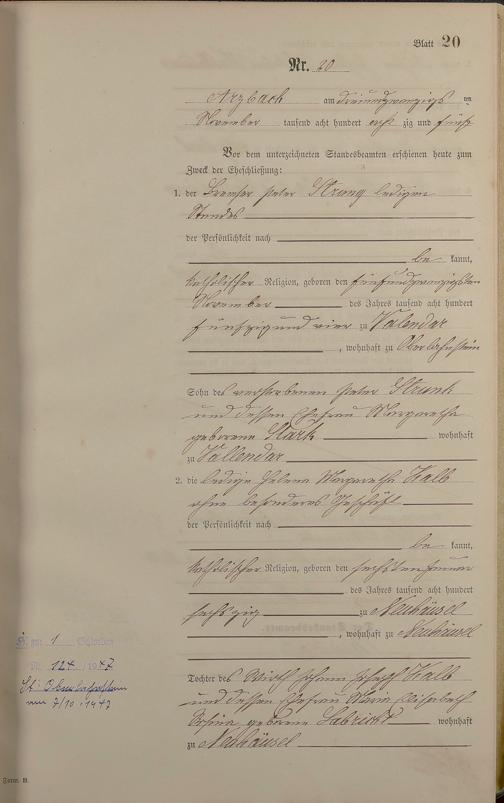 Blatt 20
Nr. 20
Arzbach am dreiundzwanzigsten
November tausend acht hundert acht zig und fünf
Vor dem unterzeichneten Standesbeamten erschienen heute zum
Zweck der Eheschließung:
1. der Bremser Peter Strunz ledigen
Standes
der Persönlichkeit nach
be kannt,
katholischer Religion, geboren den fünfundzwanzigsten
November des Jahres tausend acht hundert
fünfzig und vier zu Valendar
, wohnhaft zu Oberlahnstein
Sohn des verstorbenen Peter Strunk
und dessen Ehefrau Margaretha
geborene Stark wohnhaft
zu Vallendar
2. die ledige Helena Margaretha Kalb
ohne besonderes Geschäft
der Persönlichkeit nach
be kannt,
katholischer Religion, geboren den sechsten Januar
des Jahres tausend acht hundert
sechszig zu Neuhäusel
, wohnhaft zu Neuhäusel
Tochter des Wirth Johann Joseph Kalb
und dessen Ehefrau Maria Elisabeth
geborene wohnhaft
zu Neuhäusel
1
Nr. 124 1947
St. Oberlahnstein
vom 7/10.1947
Form. B.